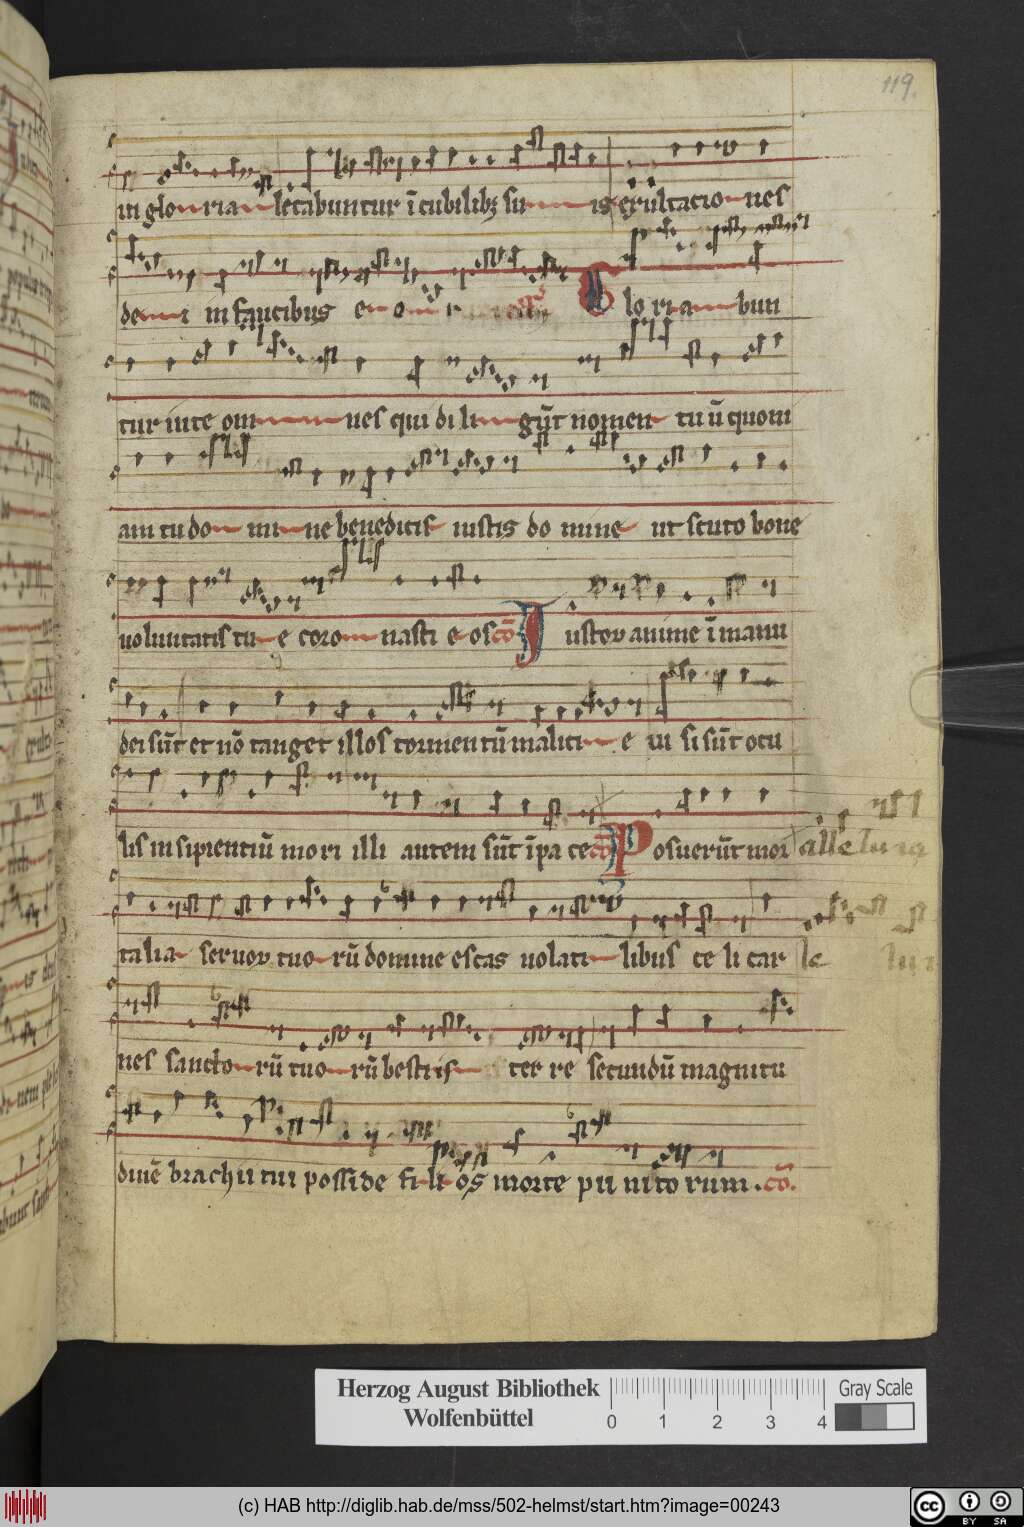 119.
in glo ria letabuntur ī cubilibꝫ su is exultatio nes
de i in faucibus e o r
G lo ri a bun
tur in te om nes qui di li gūt nomen tuū quoni
am tu do mi ne benedicis iustis do mine ut scuto bone
uoluntatis tu e coro nasti e os cō Iustoꝝ anime ī manu
dei sūt et nō tanget illos tormentū malici e ui si sūt ocu
lis insipientiū mori illi autem sūt ī pa ce cō Posuerūt mor alleluia
talia seruoꝝ tuo rū domine escas uolati libus ce li car le lu i
nes sancto rū tuo rū bestiis ter re secundū magnitu
dinē brachii tui posside fi li os morte puni to rum. cō.
Herzog August Bibliothek
Wolfenbüttel
0 1 2 3 4
Gray Scale
(c) HAB http://diglib.hab.de/mss/502-helmst/start.htm?image=00243
cc BY SA